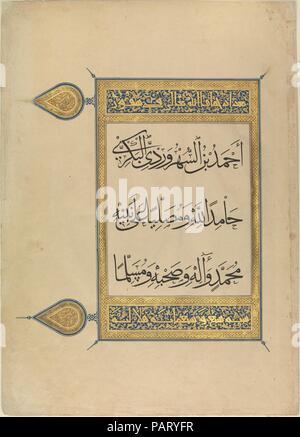 الله تعالى
أحمد بن السهروردي البكري
حامدا لله ومصليا على نبيه
محمد وآله وصحبه ومسلما
PARYFR